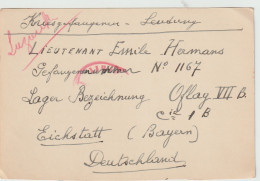 Kriegsgefangenen - Sendung
Lieutenant Emile Hamans
Gefangenennummer N° 1167
Lager Bezeichnung Oflag VII B.
Cie 1 B
Eichstatt (Bayern)
Deutschland